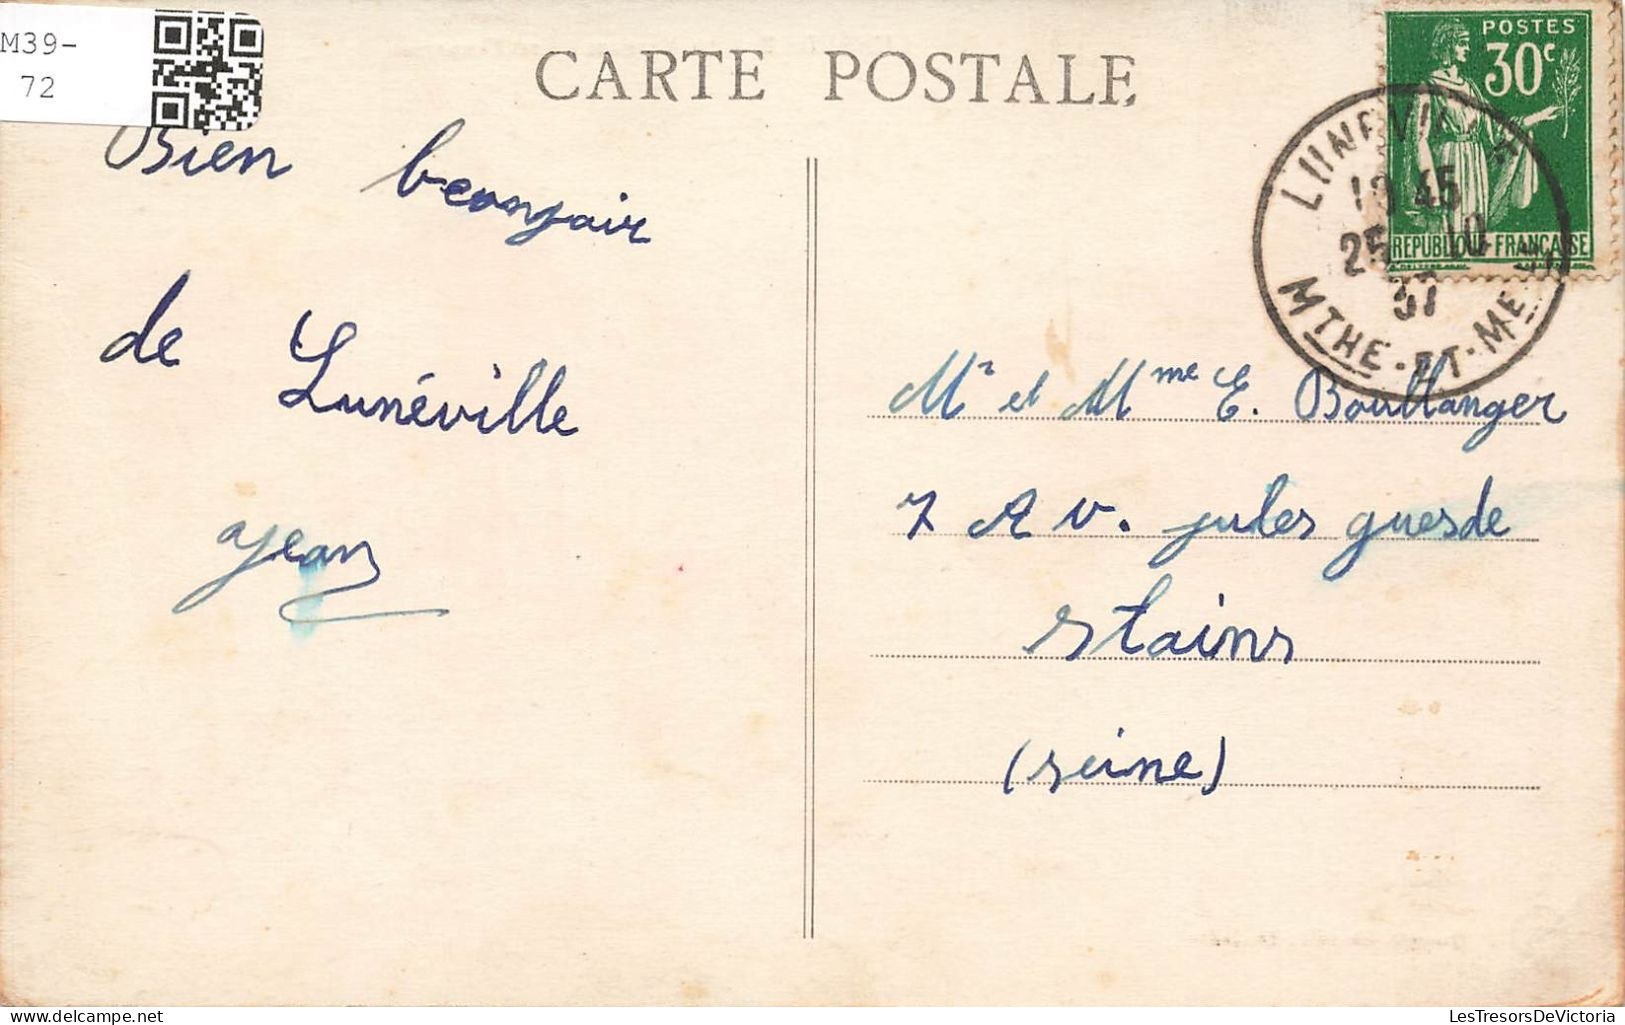 M39-
72
CARTE POSTALE
POSTES
30c
REPUBLIQUE FRANÇAISE
LUNEVILLE
25 10
37
MTHE-ET-MELLE
Bien
de
Lunéville
Jean
Mr et Mme E. Boullanger
7 Av. jules guesde
Stains
(seine)
LesTresorsDeVictoria